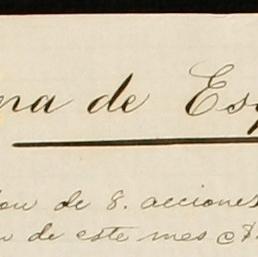 na de Esp
ion de 8. acciones
n de este mes